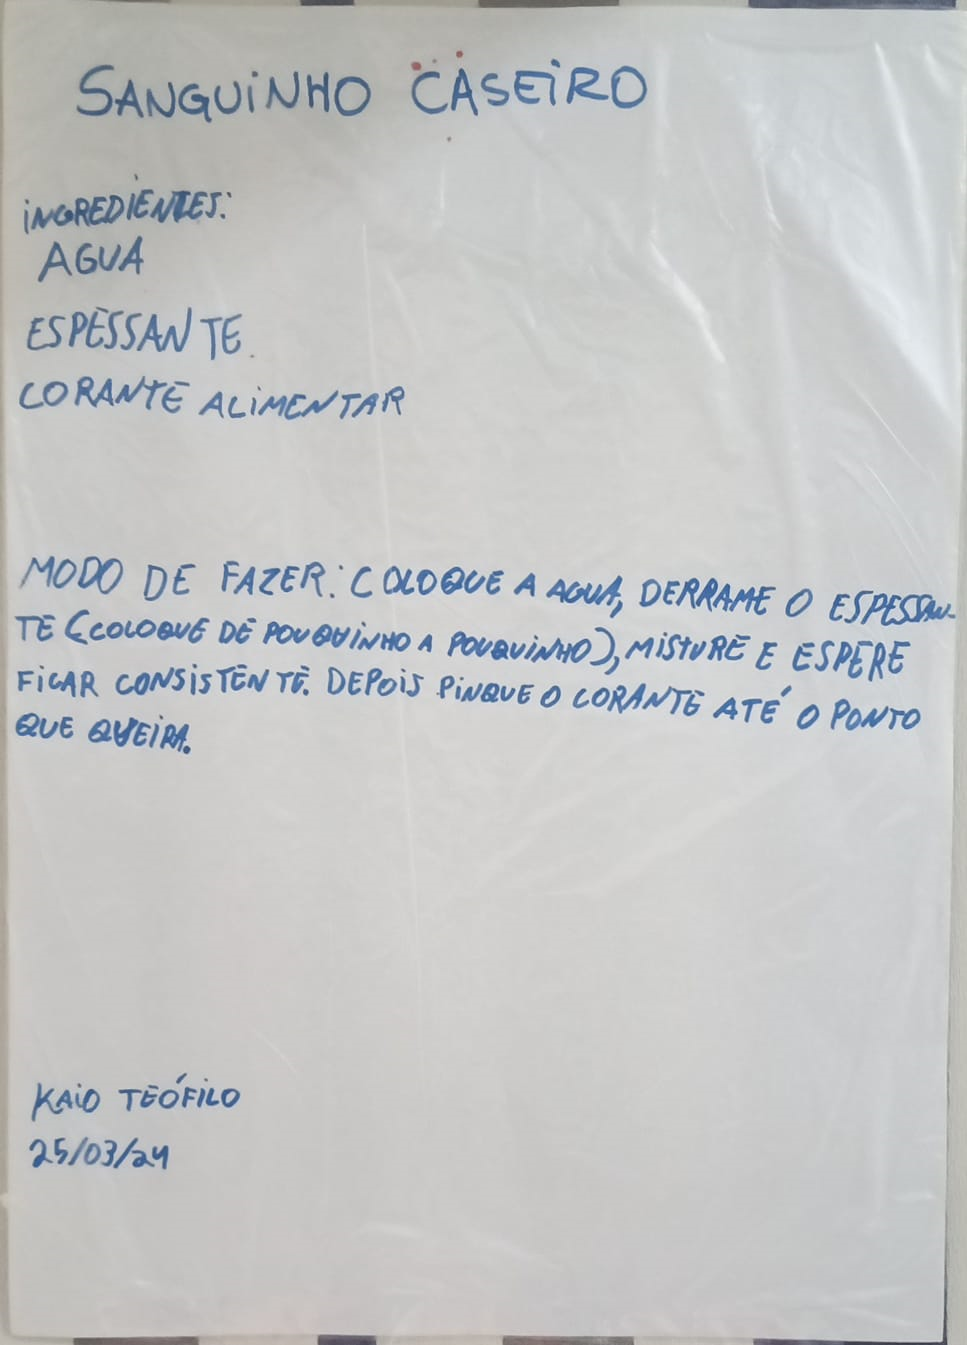 SANGUINHO CASEIRO
INGREDIENTES:
AGUA
ESPESSANTE
CORANTE ALIMENTAR
MODO DE FAZER: COLOQUE A AGUA, DERRAME O ESPESSAN-
TE (COLOQUE DE POUQUINHO A POUQUINHO), MISTURE E ESPERE
FICAR CONSISTENTE. DEPOIS PINQUE O CORANTE ATÉ O PONTO
QUE QUEIRA.
KAIO TEÓFILO
25/03/24